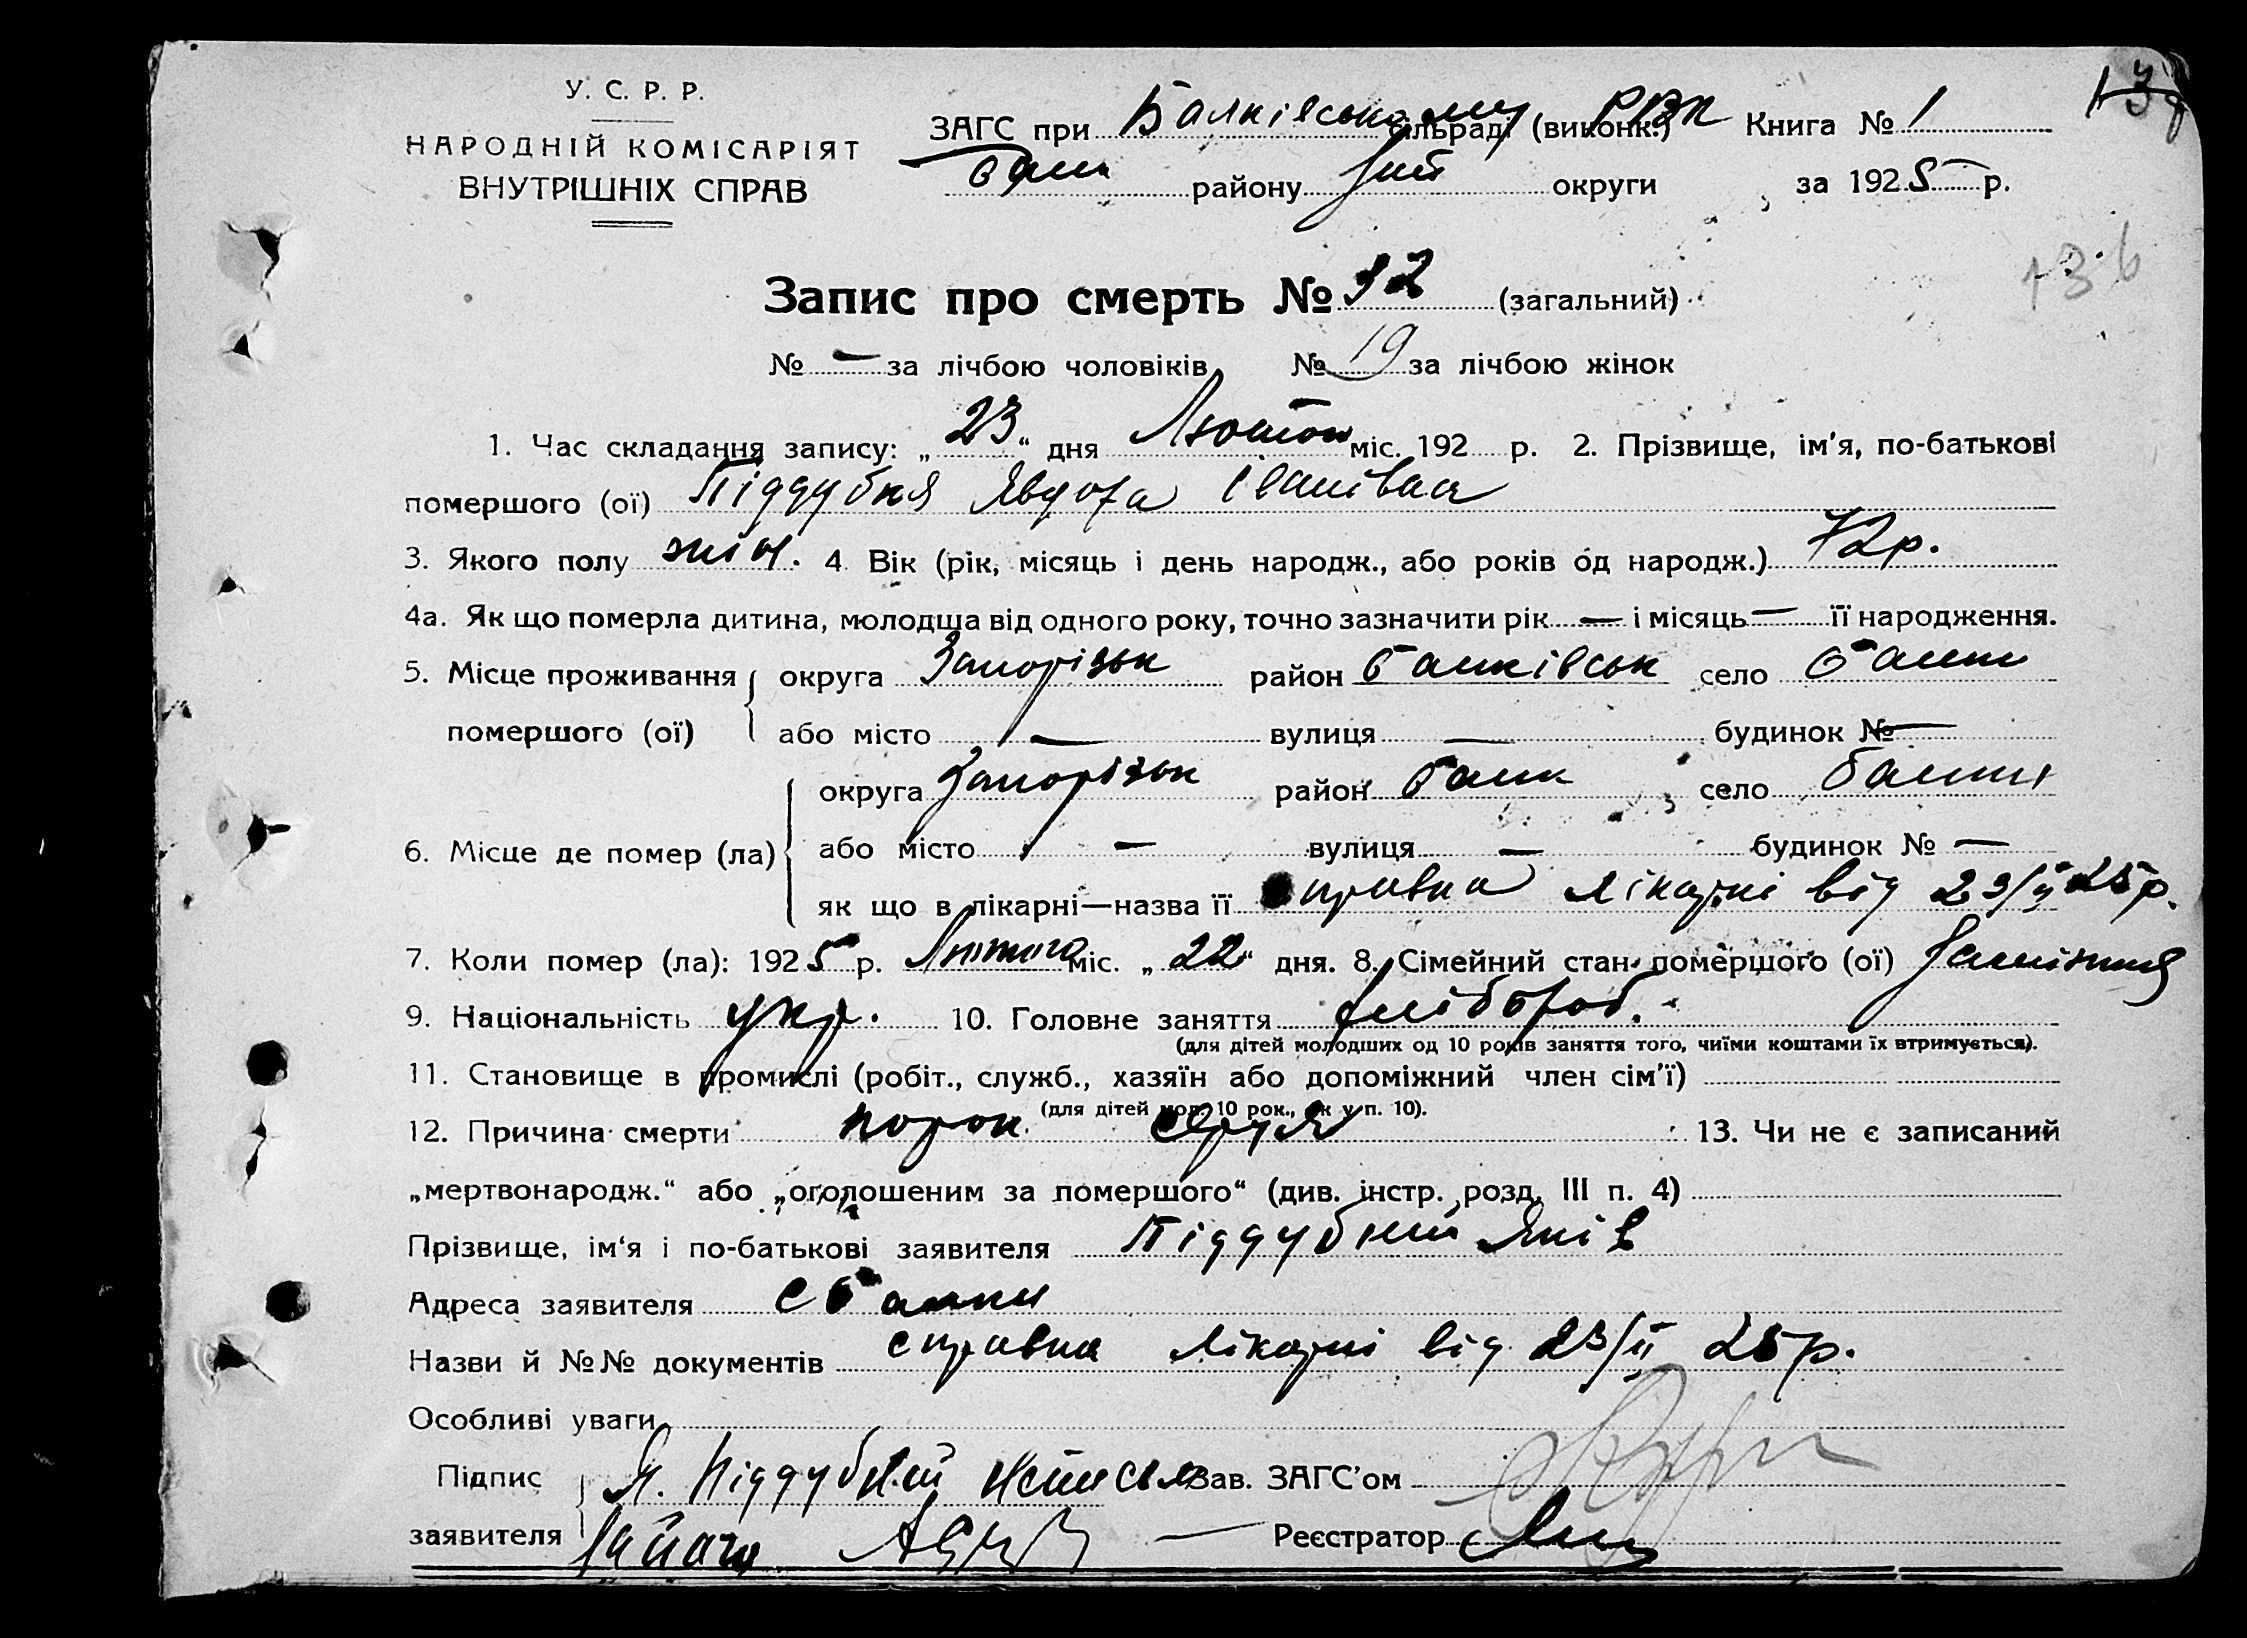 У. С. Р. Р.
НАРОДНІЙ КОМІСАРІЯТ
ВНУТРІШНІХ СПРАВ
ЗАГС при Балківському сільраді (виконк.) РВК Книга № 1
району округи за 1925 р.
136
Запис про смерть № 32 (загальний)
№ — за лічбою чоловіків № 19 за лічбою жінок
1. Час складання запису: „23“ дня Лютого міс. 192 р. 2. Прізвище, ім'я, по-батькові
помершого (ої) Піддубня Явдоха Іванівна
3. Якого полу жін. 4. Вік (рік, місяць і день народж., або років од народж.) 72 р.
4а. Як що померла дитина, молодша від одного року, точно зазначити рік — і місяць — її народження.
5. Місце проживання округа Запорізьк район балківськ село балки
помершого (ої) або місто — вулиця — будинок № —
округа Запорізьк район балк село балки
6. Місце де помер (ла) або місто — вулиця — будинок № —
як що в лікарні—назва її справка лікарні від 23/II 25 р.
7. Коли помер (ла): 1925 р. Лютого міс. „22“ дня. 8. Сімейний стан помершого (ої) Замізня
9. Національність укр. 10. Головне заняття хлібороб.
(для дітей молодших од 10 років заняття того, чиїми коштами їх втримується).
11. Становище в промислі (робіт., служб., хазяїн або допоміжний член сім'ї)
(для дітей мол. 10 рок., як у п. 10).
12. Причина смерти порок серця 13. Чи не є записаний
„мертвонародж.“ або „оголошеним за помершого“ (див. інстр. розд. III п. 4)
Прізвище, ім'я і по-батькові заявителя Піддубний Яків
Адреса заявителя с балки
Назви й №№ документів справка лікарні від 23/II 25 р.
Особливі уваги
Підпис Я. Піддубний Зав. ЗАГС'ом
заявителя Реєстратор